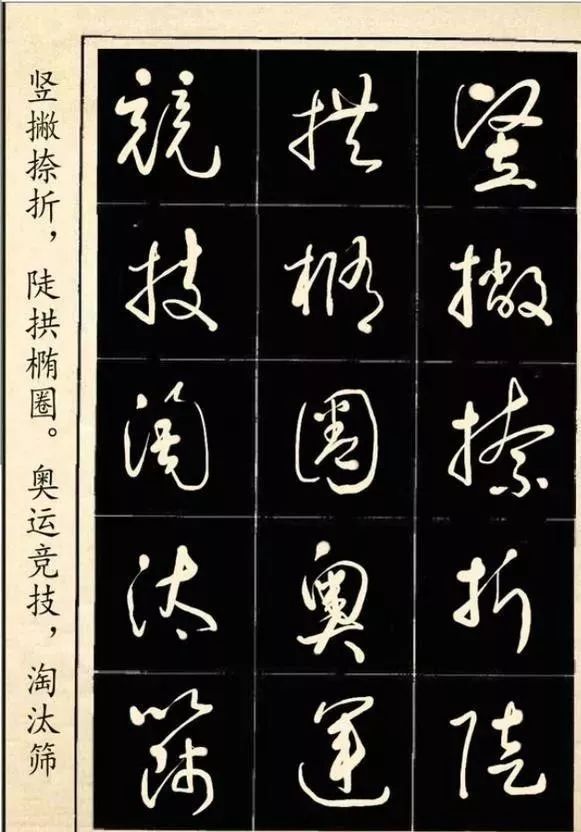 竖撇捺折，陡拱椭圈。奥运竞技，淘汰筛
竖撇捺折陡
拱椭圈奥運
競技淘汰筛